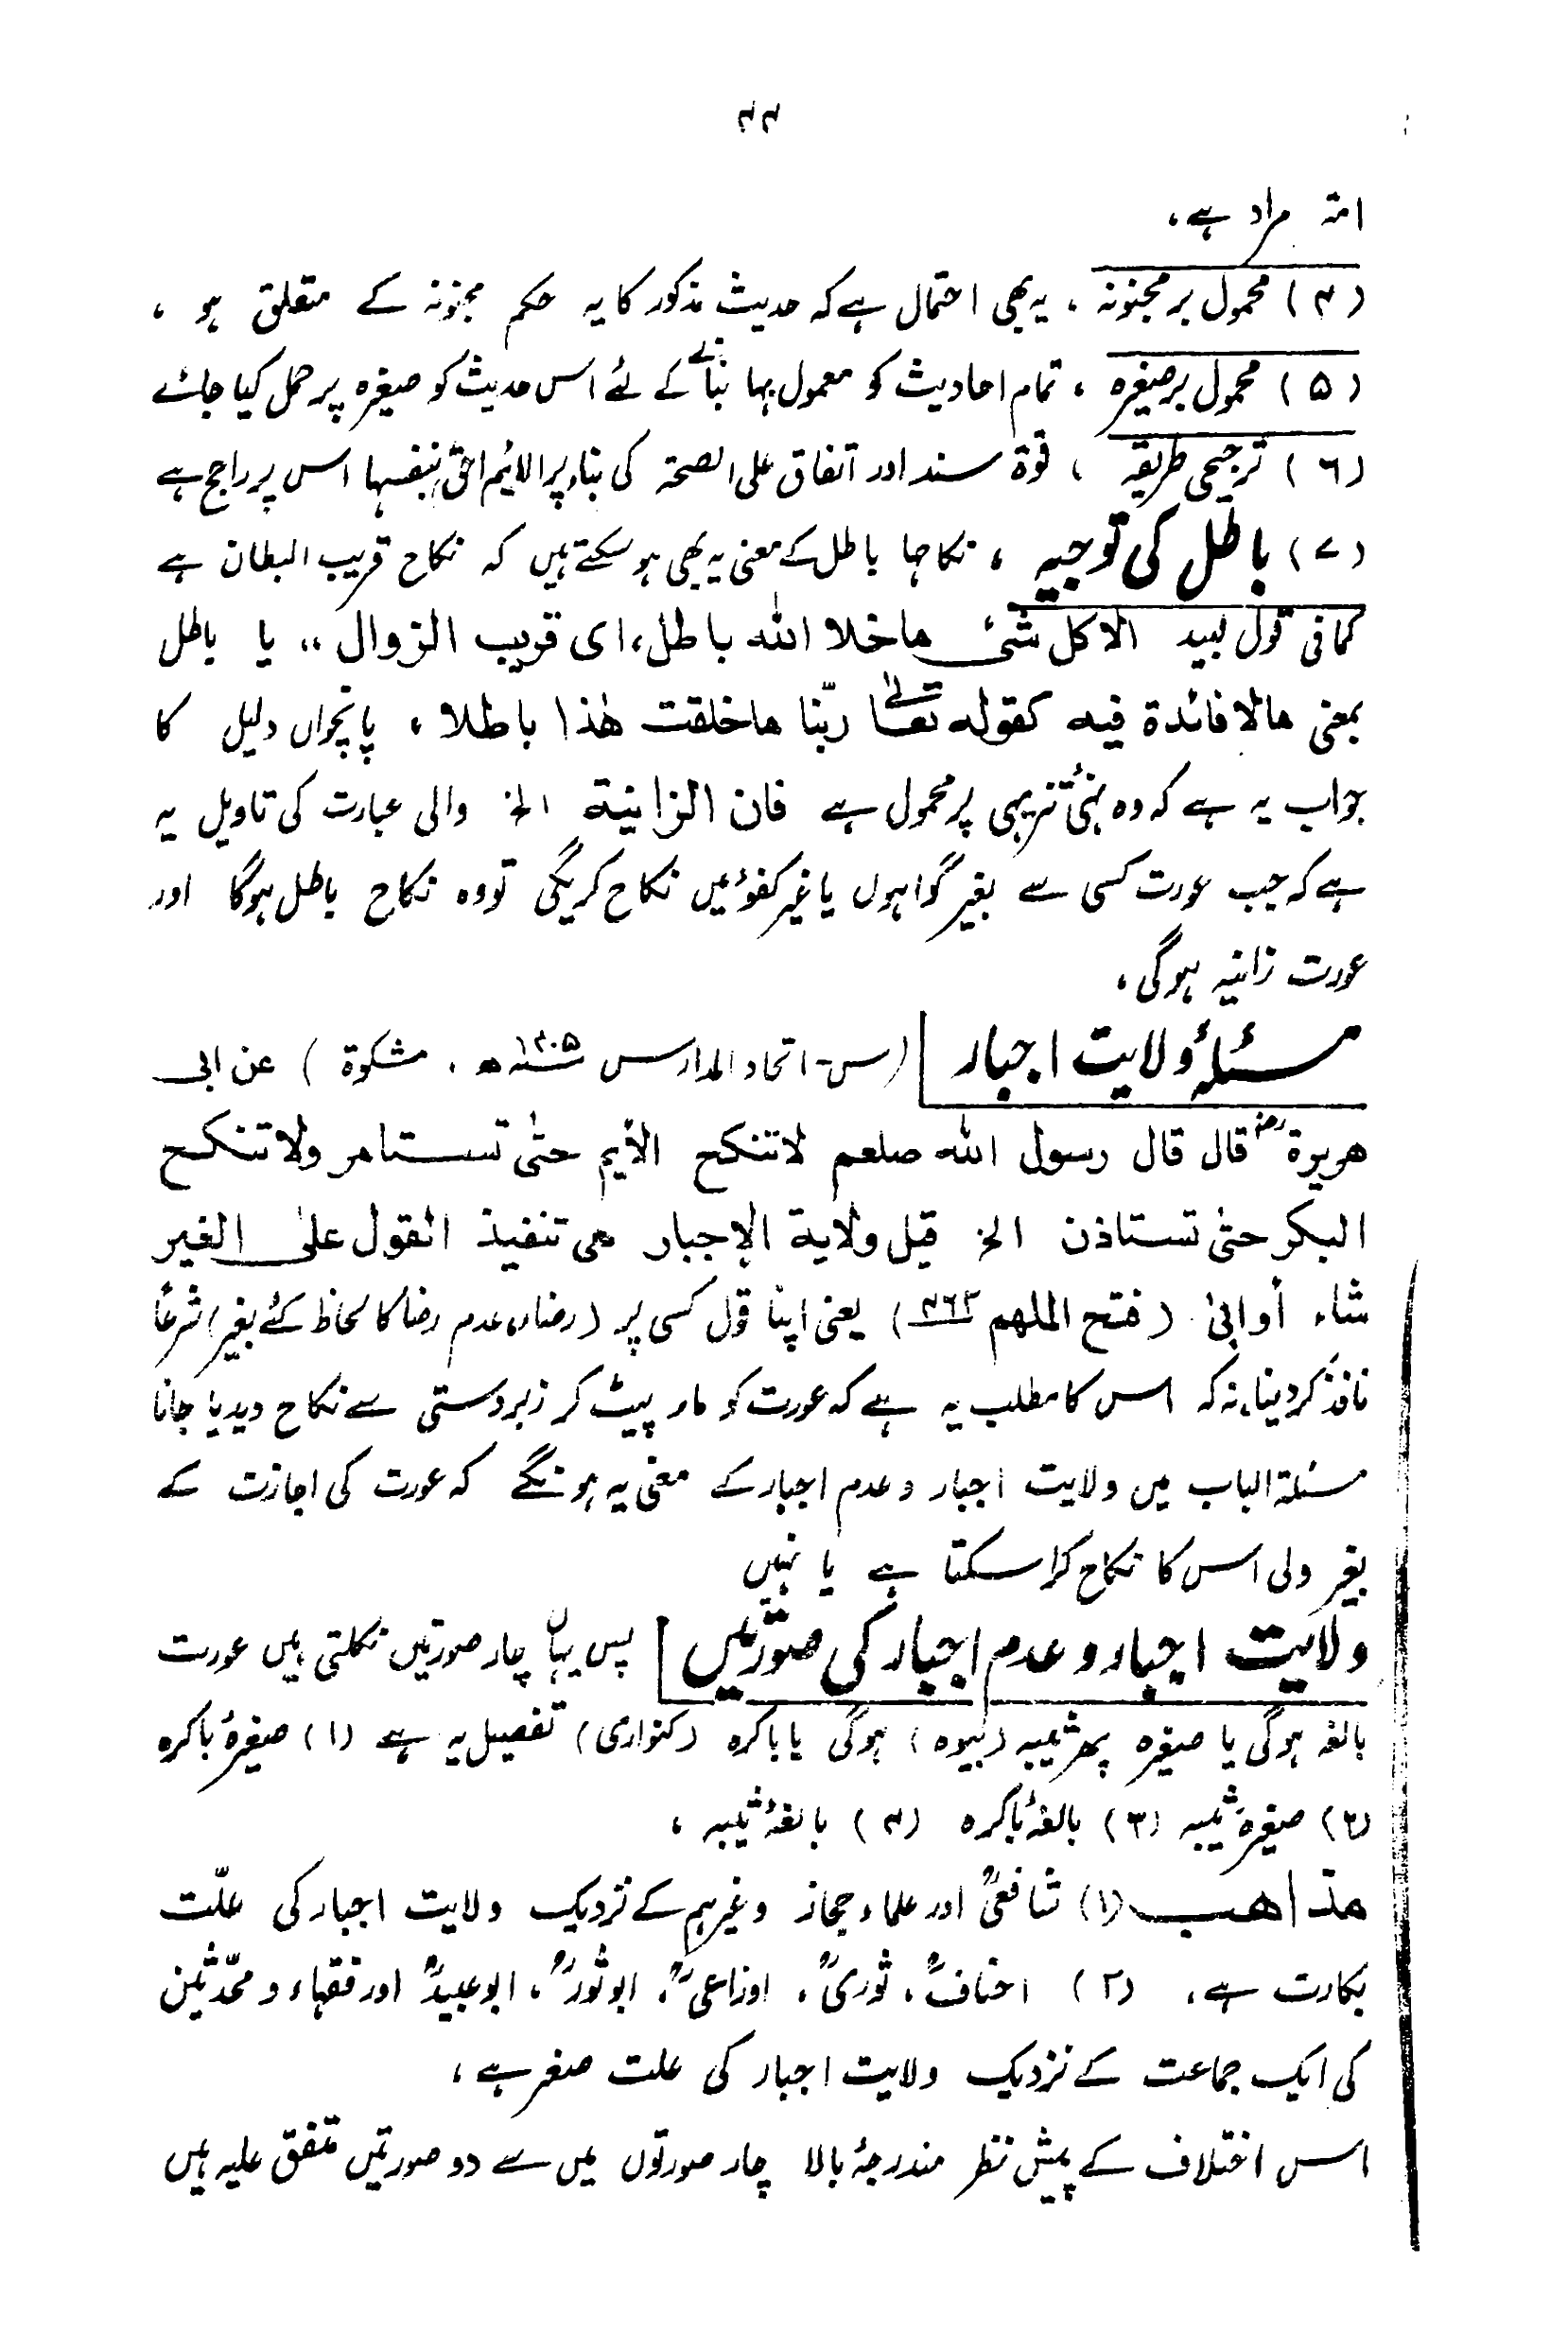 ۴۴
امۃ مراد ہے،
(۴) محمول بر مجنونہ، یہ بھی احتمال ہے کہ حدیث مذکور کا یہ حکم مجنونہ کے متعلق ہو،
(۵) محمول بر صغیرہ، تمام احادیث کو معمول بہا بنانے کے لئے اس حدیث کو صغیرہ پر حمل کیا جائے
(۶) ترجیحی طریقہ، قوۃ سند اور اتفاق علی الصحۃ کی بناء پر الایّم احقّ بنفسہا اس پر راجح ہے
(۷) باطل کی توجیہ، نکاحہا باطل کے معنی یہ بھی ہو سکتے ہیں کہ نکاح قریب البطلان ہے
کما فی قول لبید الا کل شئ ما خلا الله باطل، ای قریب الزوال ،، یا باطل
بمعنی مالا فائدة فیه کقوله تعالٰی ربّنا ما خلقت هٰذا باطلا، پانچواں دلیل کا
جواب یہ ہے کہ وہ نہیٔ تنزیہی پر محمول ہے فان الزانیة الخ والی عبارت کی تاویل یہ
ہے کہ جب عورت کسی سے بغیر گواہوں یا غیر کفوٴ میں نکاح کریگی تو وہ نکاح باطل ہوگا اور
عورت زانیہ ہوگی،
مسئلۂ ولایت اجبار (س۔ اتحاد المدارس ۱۴۰۵ھ، مشکوة) عن ابی
هریرة رضؓ قال قال رسول الله صلعم لا تنکح الأیم حتٰی تستامر ولا تنکح
البکر حتٰی تستاذن الخ قیل ولایة الإجبار هی تنفیذ القول علی الغیر
شاء أو ابٰی (فتح الملهم ۳/۴۶۲) یعنی اپنا قول کسی پر (رضا، عدم رضا کا لحاظ کئے بغیر) شرعاً
نافذ کر دینا، نہ کہ اس کا مطلب یہ ہے کہ عورت کو مار پیٹ کر زبردستی سے نکاح دیدیا جانا
مسئلۃ الباب میں ولایت اجبار و عدم اجبار کے معنی یہ ہونگے کہ عورت کی اجازت کے
بغیر ولی اس کا نکاح کرا سکتا ہے یا نہیں
ولایت اجبار و عدم اجبار کی صورتیں پس یہاں چار صورتیں نکلتی ہیں عورت
بالغہ ہوگی یا صغیرہ پھر ثیبہ (بیوہ) ہوگی یا باکرہ (کنواری) تفصیل یہ ہے (۱) صغیرۂ باکرہ
(۲) صغیرۂ ثیبہ (۳) بالغۂ باکرہ (۴) بالغۂ ثیبہ،
مذاهب (۱) شافعیؒ اور علماء حجاز وغیرہم کے نزدیک ولایت اجبار کی علّت
بکارت ہے، (۲) احنافؒ، ثوریؒ، اوزاعیؒ، ابو ثورؒ، ابو عبیدؒ اور فقہاء و محدّثین
کی ایک جماعت کے نزدیک ولایت اجبار کی علت صغر ہے،
اس اختلاف کے پیش نظر مندرجۂ بالا چار صورتوں میں سے دو صورتیں متفق علیہ ہیں